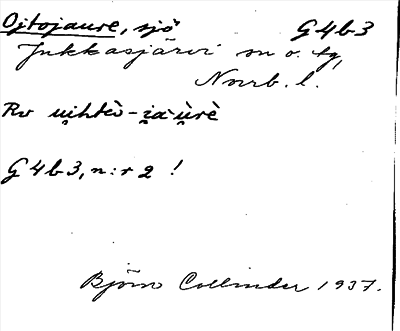 Ojtojaure, sjö G4b3
Jukkasjärvi sn o. tg,
Norrb. l.
Rv u̯ihtèv-i̯a·u̯rè
G4b3, n:r 2 !
Björn Collinder 1937.